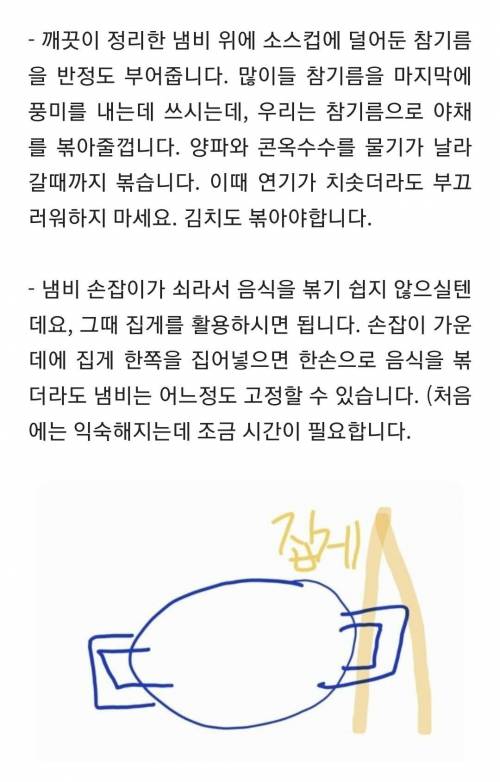 - 깨끗이 정리한 냄비 위에 소스컵에 덜어둔 참기름
을 반정도 부어줍니다. 많이들 참기름을 마지막에
풍미를 내는데 쓰시는데, 우리는 참기름으로 야채
를 볶아줄껍니다. 양파와 콘옥수수를 물기가 날라
갈때까지 볶습니다. 이때 연기가 치솟더라도 부끄
러워하지 마세요. 김치도 볶아야합니다.
- 냄비 손잡이가 쇠라서 음식을 볶기 쉽지 않으실텐
데요, 그때 집게를 활용하시면 됩니다. 손잡이 가운
데에 집게 한쪽을 집어넣으면 한손으로 음식을 볶
더라도 냄비는 어느정도 고정할 수 있습니다. (처음
에는 익숙해지는데 조금 시간이 필요합니다.
집게